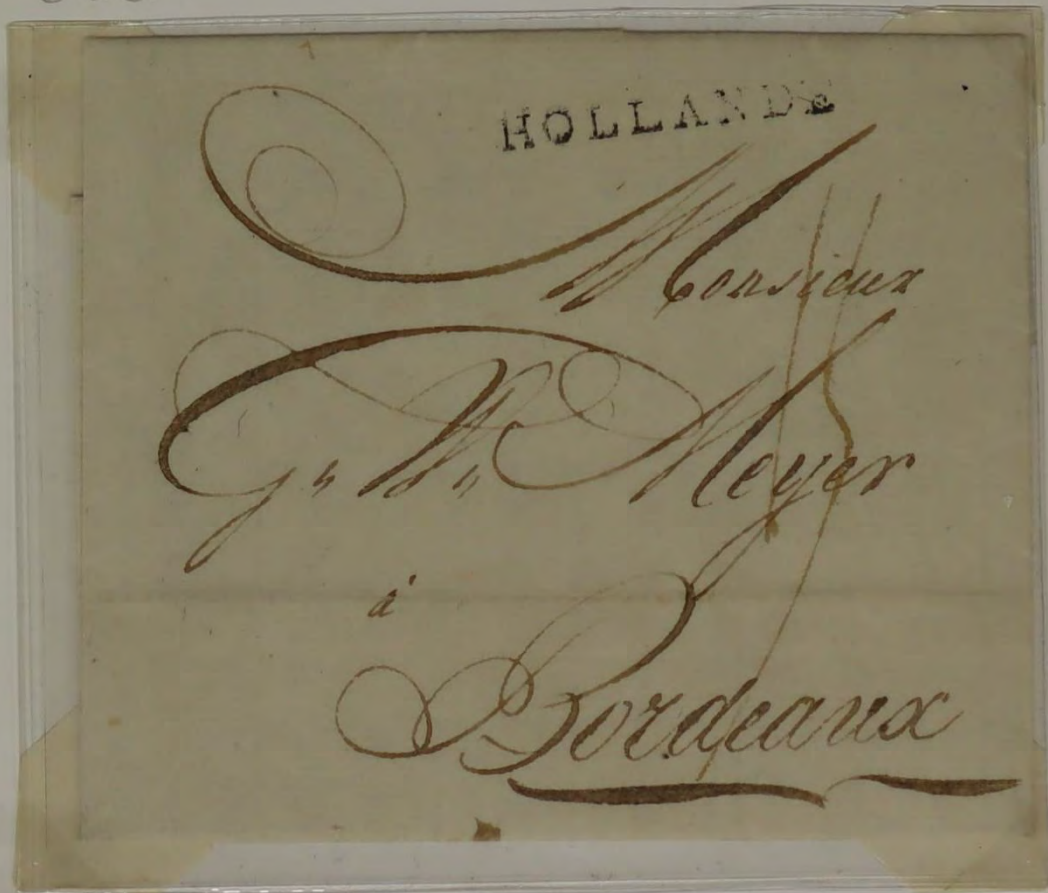 HOLLANDE
Monsieur
G„ W„ Meyer
à
Bordeaux